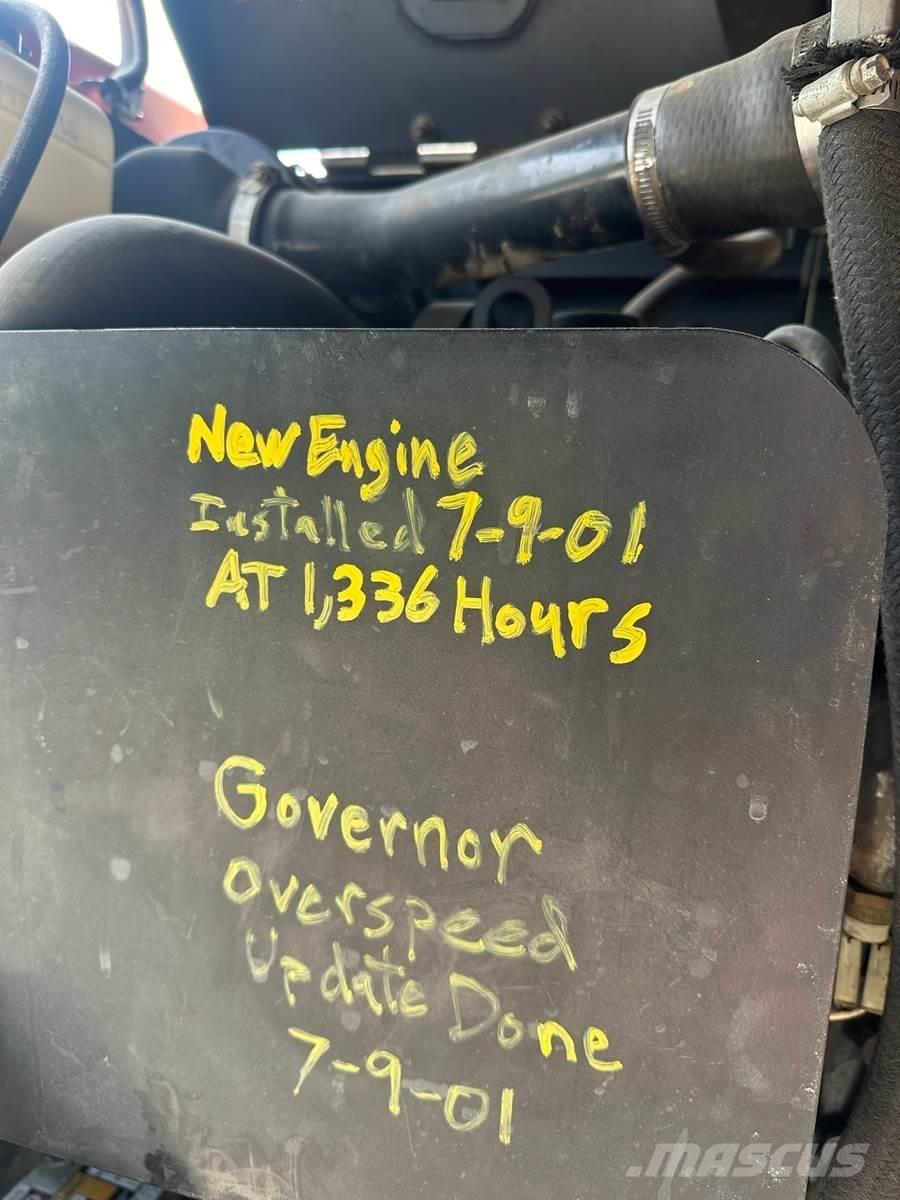 New Engine
Installed 7-9-01
AT 1,336 Hours
Governor
Overspeed
Update Done
7-9-01
MASCUS